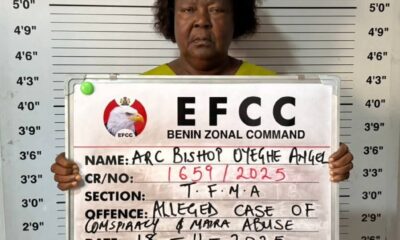 5'0"
4'9"
4'6"
4'3"
4'0"
3'9"
3'6"
3'3"
3'0"
2'9"
EFCC
EFCC
BENIN ZONAL COMMAND
NAME: ARC BISHOP OYEGHE ANGEL
CR/NO: 1659/2025
SECTION: T.F.M.A
OFFENCE: ALLEGED CASE OF
CONSPIRACY & NAIRA ABUSE
DATE: 18-11-2025
5'0"
4'9"
4'6"
4'3"
4'0"
3'9"
3'6"
3'3"
3'0"
2'9"